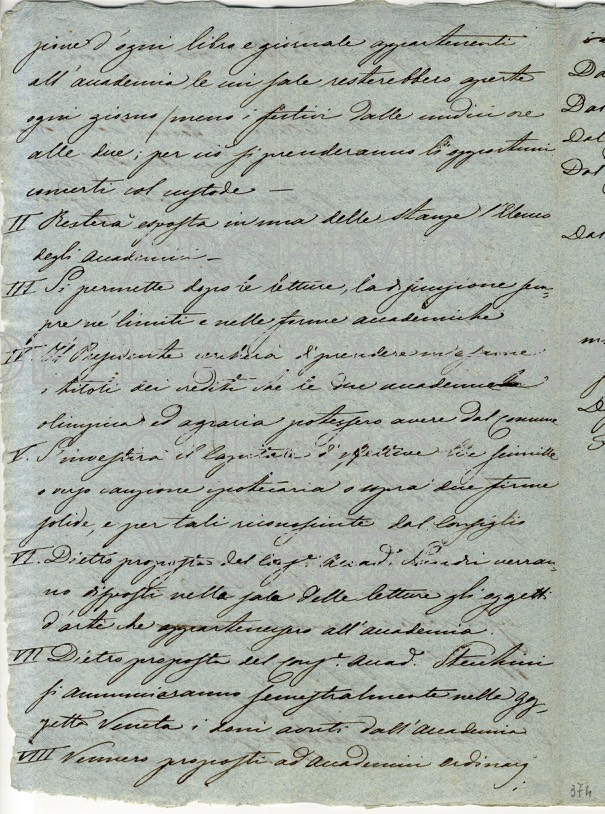 zione d'ogni libro e giornale appartenenti
all'academia le cui sale resterebbero aperte
ogni giorno meno i festivi dalle undici ore
alle due; per ciò si prenderanno li opportuni
concerti col custode —
II Resterà esposto in una delle stanze l'Elenco
degli Academici —
III Si permette dopo le letture, la discussione sem-
pre ne' limiti e nelle forme academiche
IV Il Presidente cercherà di prendere in esame
i titoli dei crediti che le due academie
olimpica ed agraria potessero avere dal Comune
V. S'investirà il Capitale di effettive Lire seimille
o verso cauzione ipotecaria o sopra due firme
solide, e per tali riconosciute dal Consiglio
VI. Dietro proposta del Acad. verran-
no disposti nella sala delle letture gli oggetti
d'arte che appartenessero all'academia.
VII Dietro proposta del Acad. Stecchini
si annunzieranno semestralmente nella Gaz-
zetta Veneta i doni avuti dall'Academia
VIII Vennero proposti ad Academici Ordinarj
374